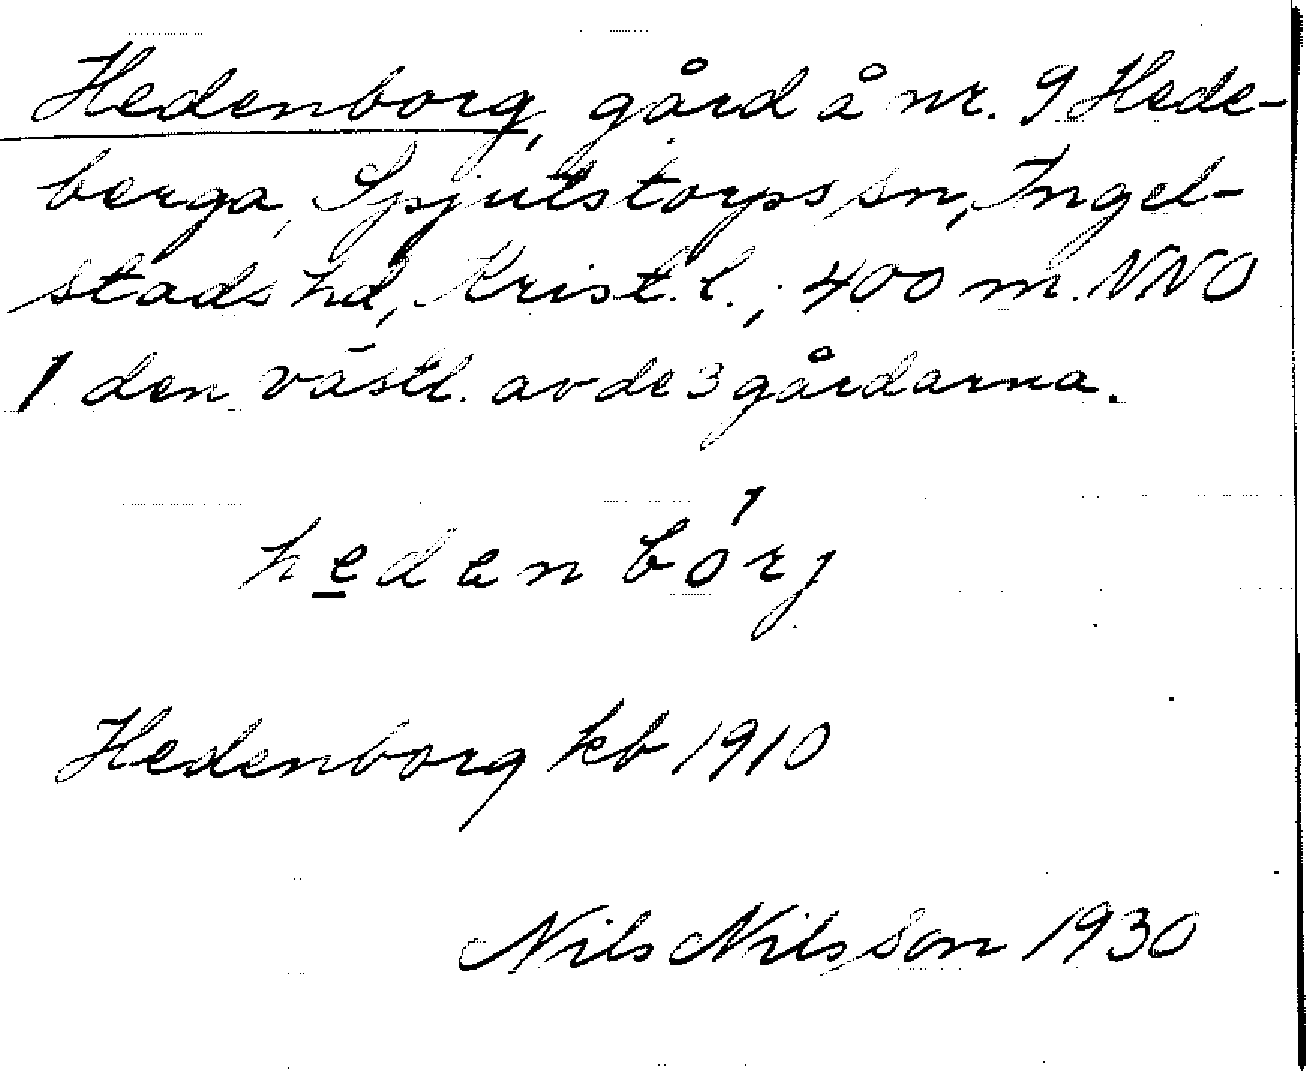 Hedenborg, gård å nr. 9 Hede-
berga, Spjutstorps sn, Ingel-
stads hd, Krist. l.; 400 m. NNO
1 den västl. av de 3 gårdarna.
hedenbórj
Hedenborg kb 1910
Nils Nilsson 1930